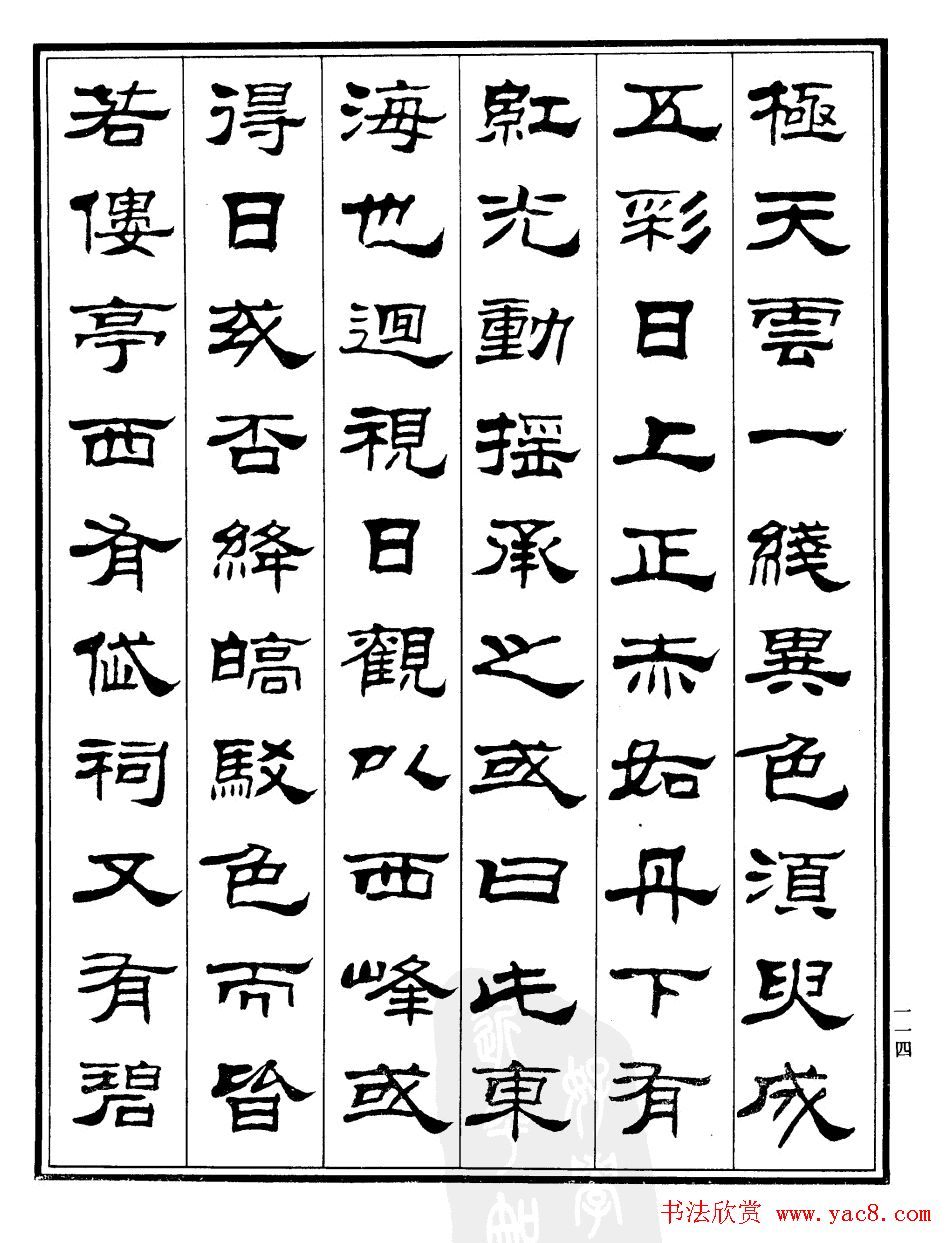 極天雲一綫異色須臾成
五彩日上正赤如丹下有
紅光動摇承之或曰此東
海也迴視日觀以西峰或
得日或否絳皜駁色而皆
若僂亭西有岱祠又有碧
一一四
书法欣赏 www.yac8.com